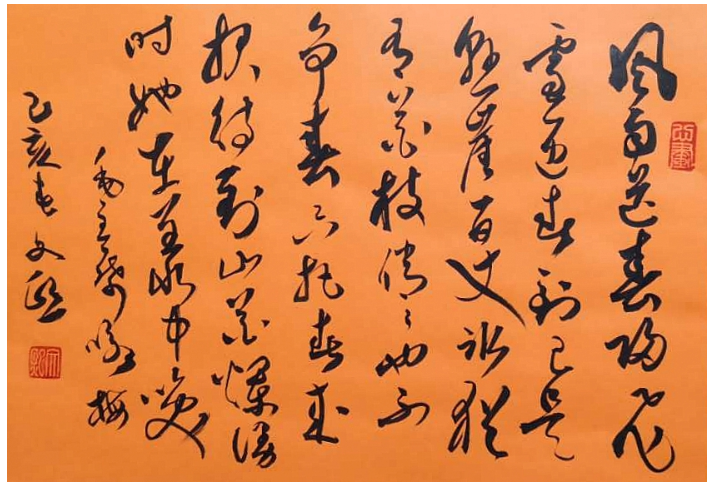 风雨送春归飞
雪迎春到已是
悬崖百丈冰犹
有花枝俏々也不
争春只把春来
报待到山花烂漫
时她在丛中笑
毛主席咏梅
乙亥春文